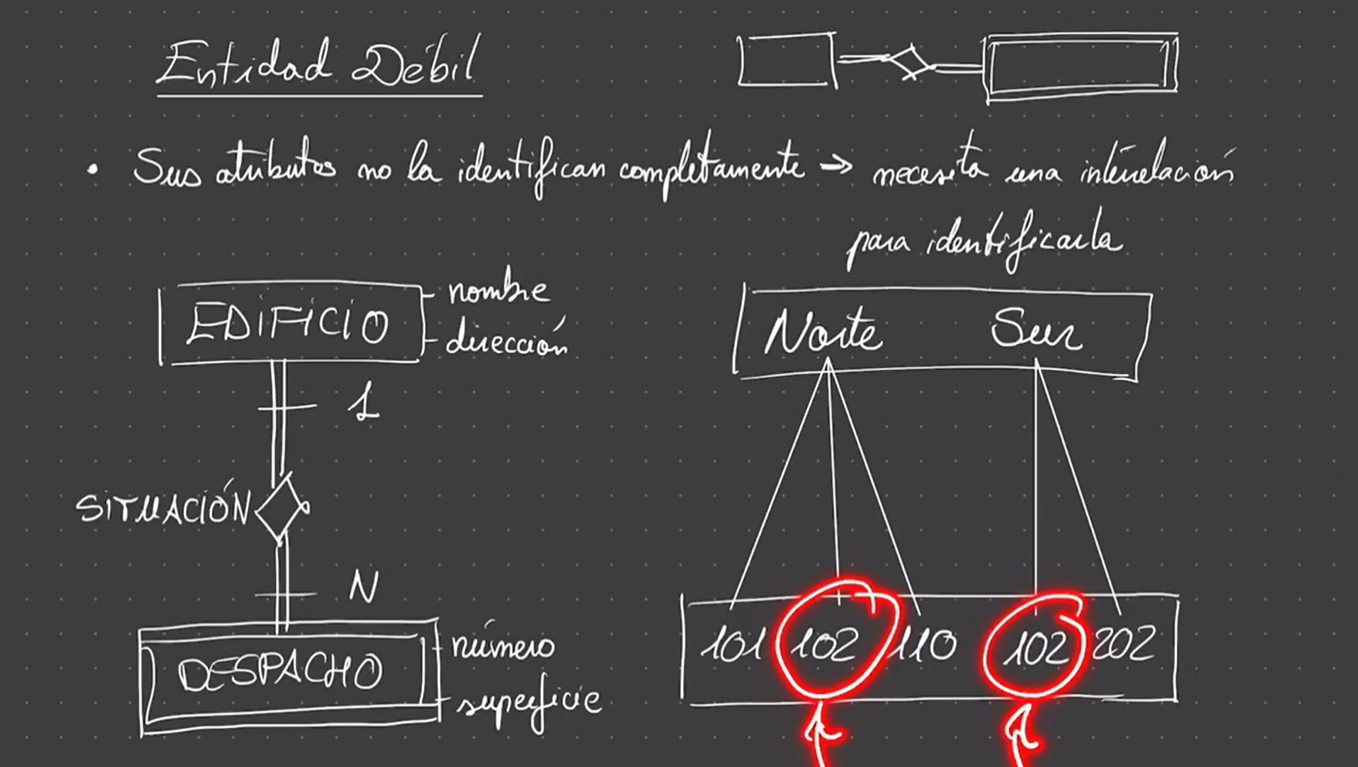 Entidad Débil
• Sus atributos no la identifican completamente → necesita una interrelación
para identificarla
EDIFICIO
nombre
dirección
1
SITUACIÓN
N
DESPACHO
número
superficie
Norte Sur
101 102 110 102 202